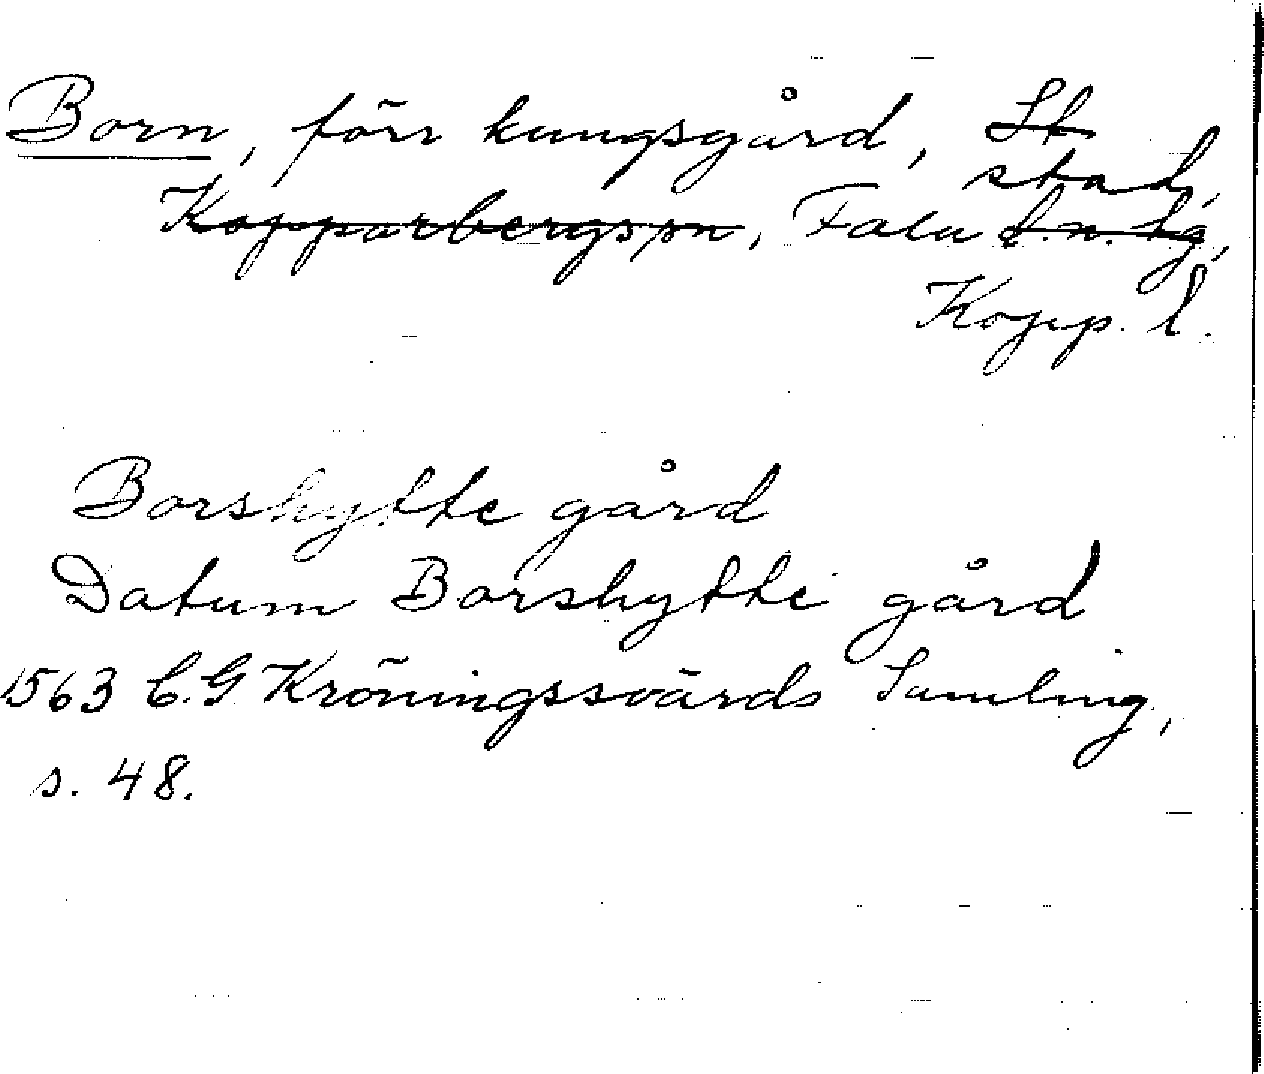 Born, förr kungsgård, St
Kopparbergs sn, Falu stad,
d.n. lg,
Kopp. l.
Borshytte gård
Datum Borshytte gård
1563 C.G Kröningssvärds Samling,
s. 48.